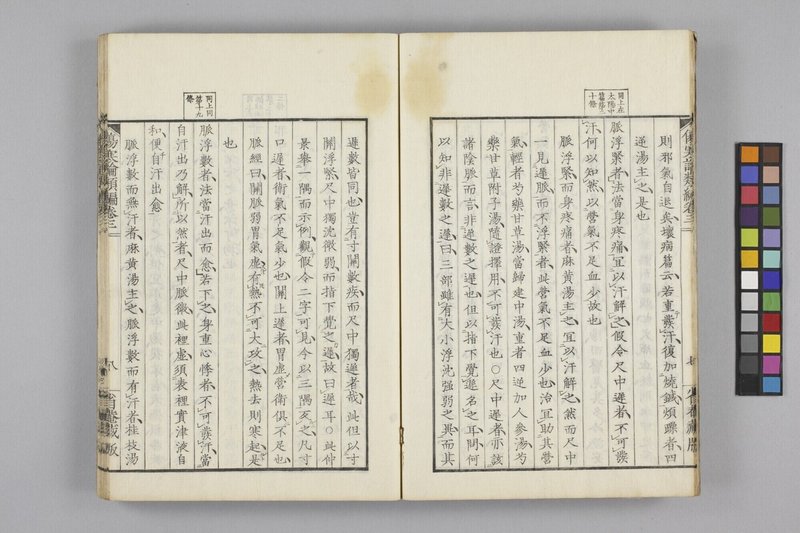 則邪氣自退矣壞病篇云若重發汗復加燒鍼煩躁者四
逆湯主之是也
同上在
太陽中
篇第二
十條
脈浮緊者法當身疼痛宜以汗解之假令尺中遲者不可發
汗何以知然以營氣不足血少故也
脈浮緊而身疼痛者麻黃湯主之宜以汗解之然而尺中
一見遲脈而不浮緊者此營氣不足血少也治宜助其營
氣輕者芍藥甘草湯當歸建中湯重者四逆加人參湯芍
藥甘草附子湯隨證擇用不可發汗也○尺中遲者亦該
諸陰脈而言非遲數之遲也但以指下覺遲名之耳問何
以知非遲數之遲曰三部雖有大小浮沈强弱之異而其
遲數皆同也豈有寸關數疾而尺中獨遲者哉此但以寸
關浮緊尺中獨沈微弱而指下覺之遲故曰遲耳○此仲
景擧一隅而示例觀假令二字可見今以三隅反之凡寸
口遲者衛氣不足氣少也關上遲者胃虛營衛俱不足也
脈經曰關脈弱胃氣虛有熱不可大攻之熱去則寒起是
也
同上同
第十九
條
脈浮數者法當汗出而愈若下之身重心悸者不可發汗當
自汗出乃解所以然者尺中脈微此裡虛須表裡實津液自
和便自汗出愈
脈浮數而無汗者麻黃湯主之脈浮數而有汗者桂枝湯
傷寒論類編卷三
八